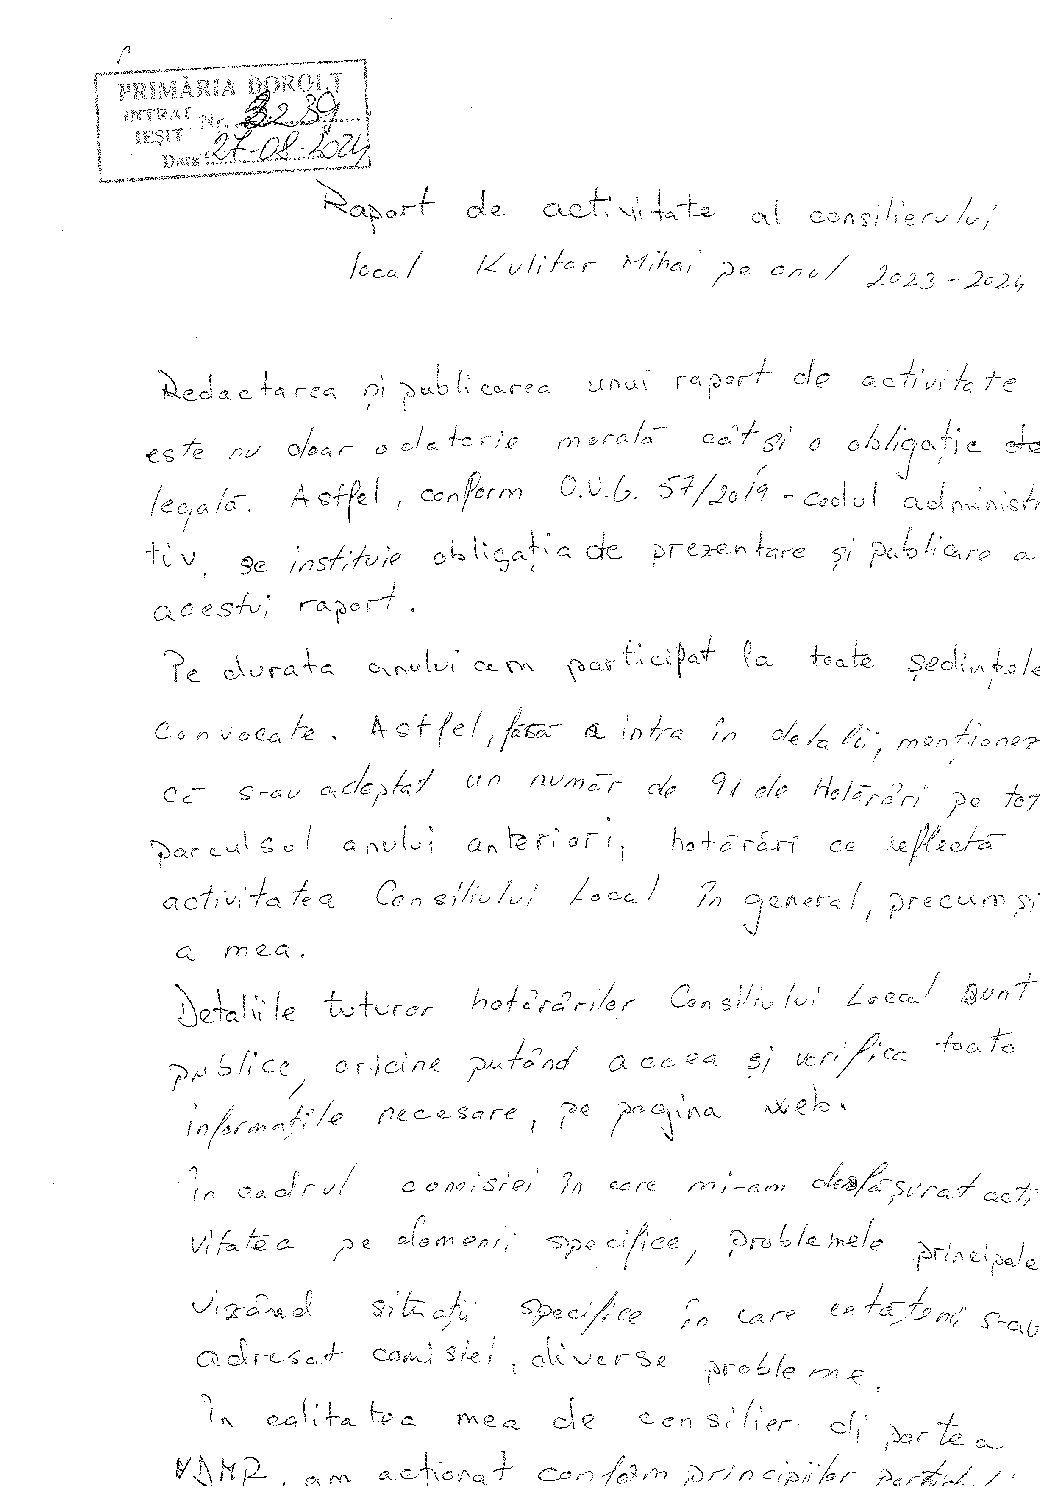 PRIMĂRIA DOROLȚ
INTRAT
IEȘIT Nr. 3239
Data 27-08-2024
Raport de activitate al consilierului
local Kulitar Mihai pe anul 2023-2024
Redactarea și publicarea unui raport de activitate
este nu doar o datorie morală cât și o obligație de
legală. Astfel, conform O.U.G. 57/2019 - codul administr
tiv, se instituie obligația de prezentare și publicare a
acestui raport.
Pe durata anului am participat la toate ședințele
convocate. Astfel, fără a intra în detalii, menționez
că s-au adoptat un număr de 91 de Hotărâri pe tot
parculsul anului anteriori, hotărâri ce reflectă
activitatea Consiliului Local în general, precum și
a mea.
Detaliile tuturor hotărârilor Consiliului Local sunt
publice, oricine putând accea și verifica toate
informațiile necesare, pe pagina web.
În cadrul comisiei în care mi-am desfășurat acti
vitatea pe domenii specifice, problemele principale
vizând situații specifice în care cetățenii s-au
adresat comisiei, diverse probleme.
În calitatea mea de consilier di partea
am acționat conform principiilor